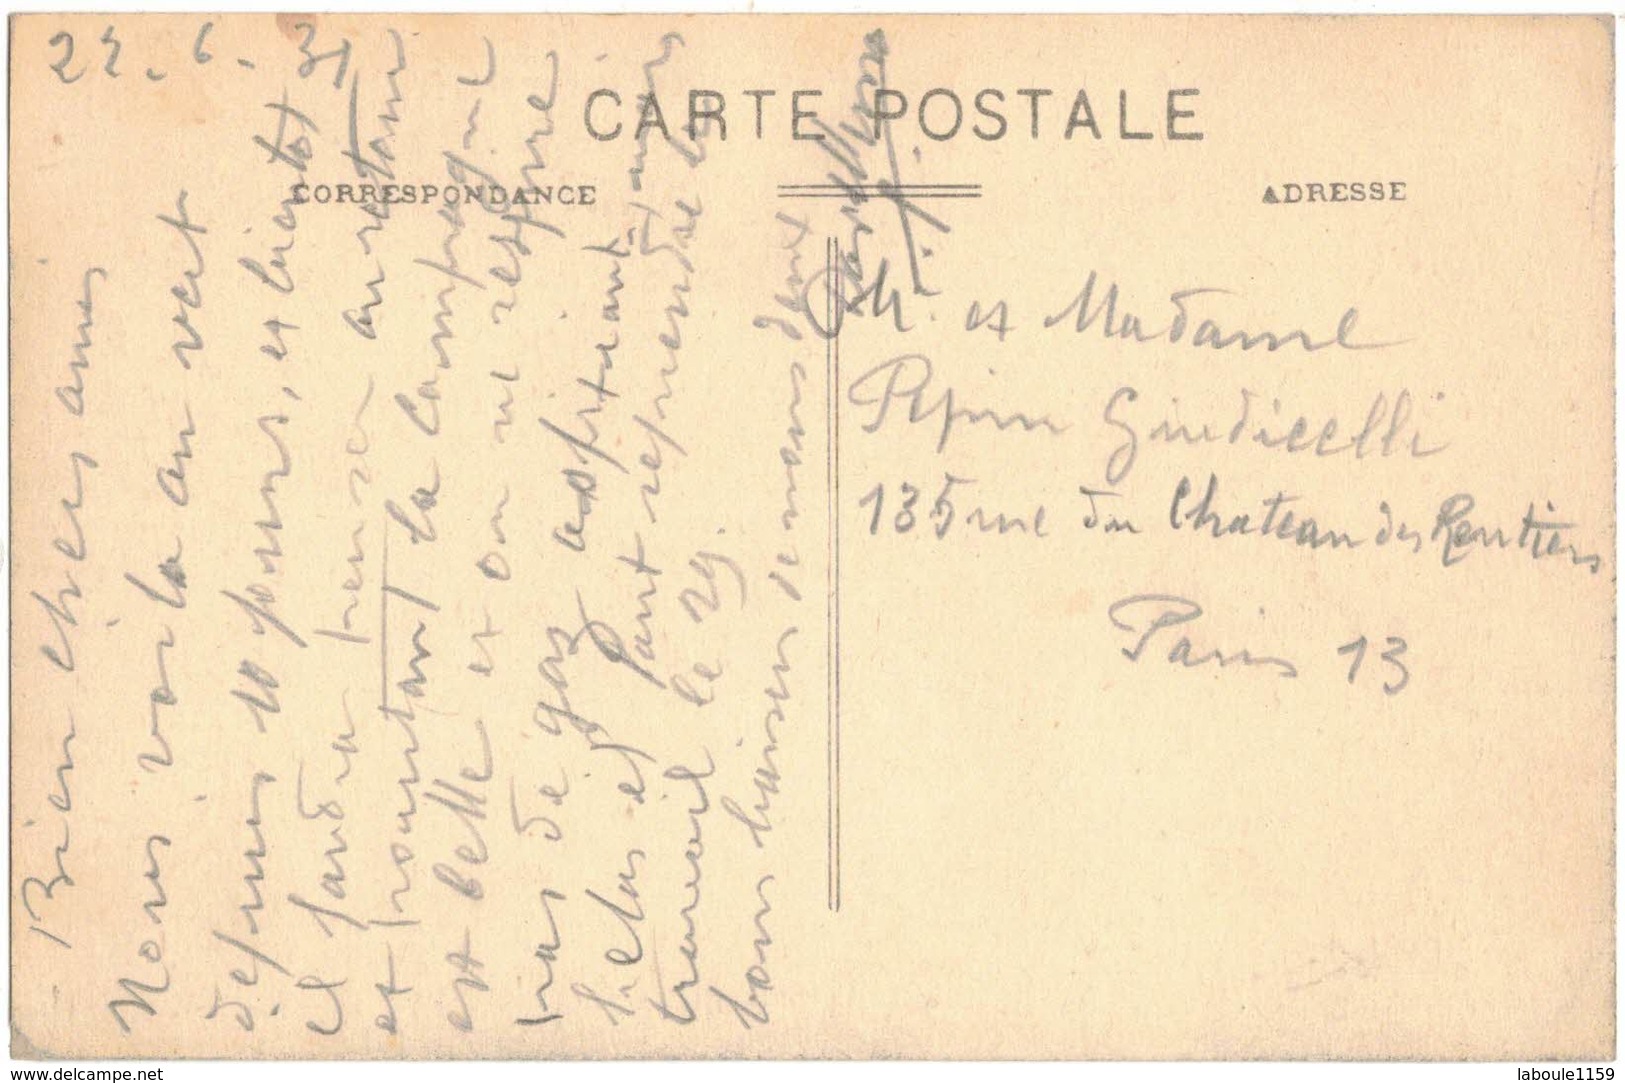 CARTE POSTALE
CORRESPONDANCE
ADRESSE
Bien chers amis
Nous voila au vert
depuis 10 jours, et bientot
il faudra penser au retour
et pourtant la campagne
est belle et on ne respire
pas de gaz
helas et faut reprendre le
travail le 29.
bons baisers de nous deux
M. et Madame
Pepin Giudicelli
135 rue du Chateau des Rentiers
Paris 13
www.delcampe.net
laboule1159